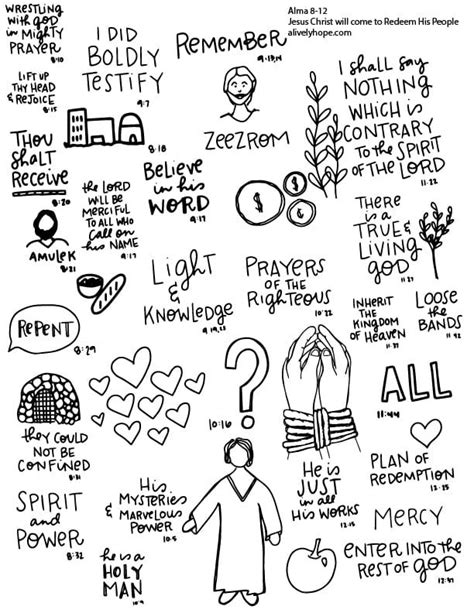 Alma 8-12
Jesus Christ will come to Redeem His People
alivelyhope.com
WRESTLING
with GOD
in MIGHTY
PRAYER
8:10
I DID
BOLDLY
TESTIFY
9:7
REMEMBER
9:13,14
LIFT UP
THY HEAD
& REJOICE
8:15
I SHALL SAY
NOTHING
WHICH is
CONTRARY
To the SPIRIT
OF THE LORD
11:22
8:18
ZEEZROM
THOU
SHALT
RECEIVE
8:20
BELIEVE
in his
WORD
9:17
the LORD
WILL BE
MERCIFUL
TO ALL WHO
CALL ON
his NAME
9:17
$
$
¢
AMULEK
8:21
THERE
is a
TRUE &
LIVING
GOD
11:27
LIGHT
&
KNOWLEDGE
9:19,23
PRAYERS
OF THE
RIGHTEOUS
10:22
INHERIT
THE
KINGDOM
OF HEAVEN
11:37
LOOSE
the
BANDS
11:42
REPENT
8:29
?
10:16
ALL
11:44
they COULD
NOT BE
CONFINED
8:31
PLAN OF
REDEMPTION
12:25
SPIRIT
and
POWER
8:32
His
MYSTERIES
&
MARVELOUS
POWER
10:5
He is
JUST
in all
HIS WORKS
12:15
MERCY
he is a
HOLY
MAN
10:9
ENTER INTO the
REST OF GOD
12:37